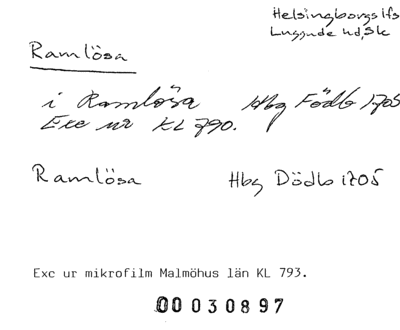 Helsingborgs lfs
Luggude hd, Sk
Ramlösa
i Ramlösa Hbg Födb 1705
Exc ur KL 790.
Ramlösa Hbg Dödb 1705
Exc ur mikrofilm Malmöhus län KL 793.
00030897